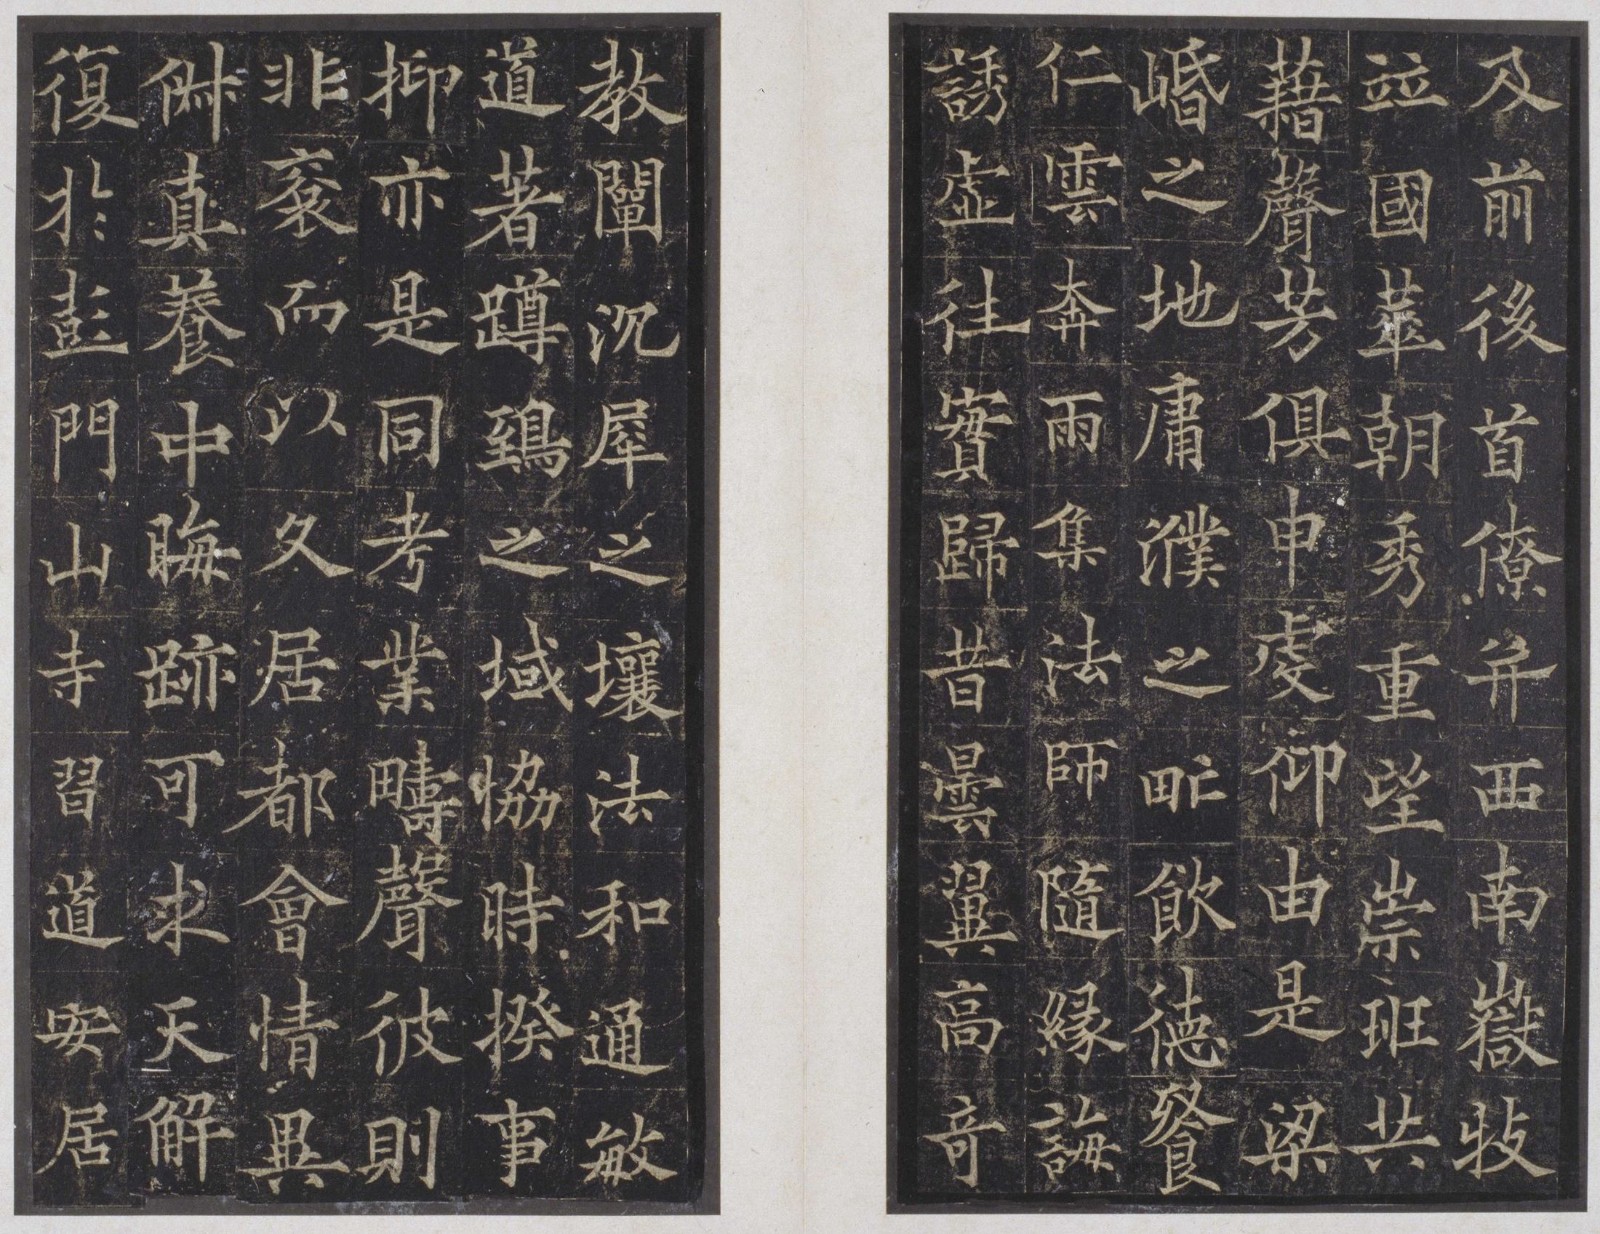 及前後首僚并西南嶽牧
竝國華朝秀重望崇班共
藉聲芳俱申虔仰由是梁
㟭之地庸濮之甿飲德飡
仁雲奔雨集法師隨緣誨
誘虛往實歸昔曇翼高奇
教闡沉犀之壤法和通敏
道著蹲鵄之域協時揆事
抑亦是同考業疇聲彼則
非衮而以久居都會情異
倂真養中晦跡可求天解
復於彭門山寺習道安居